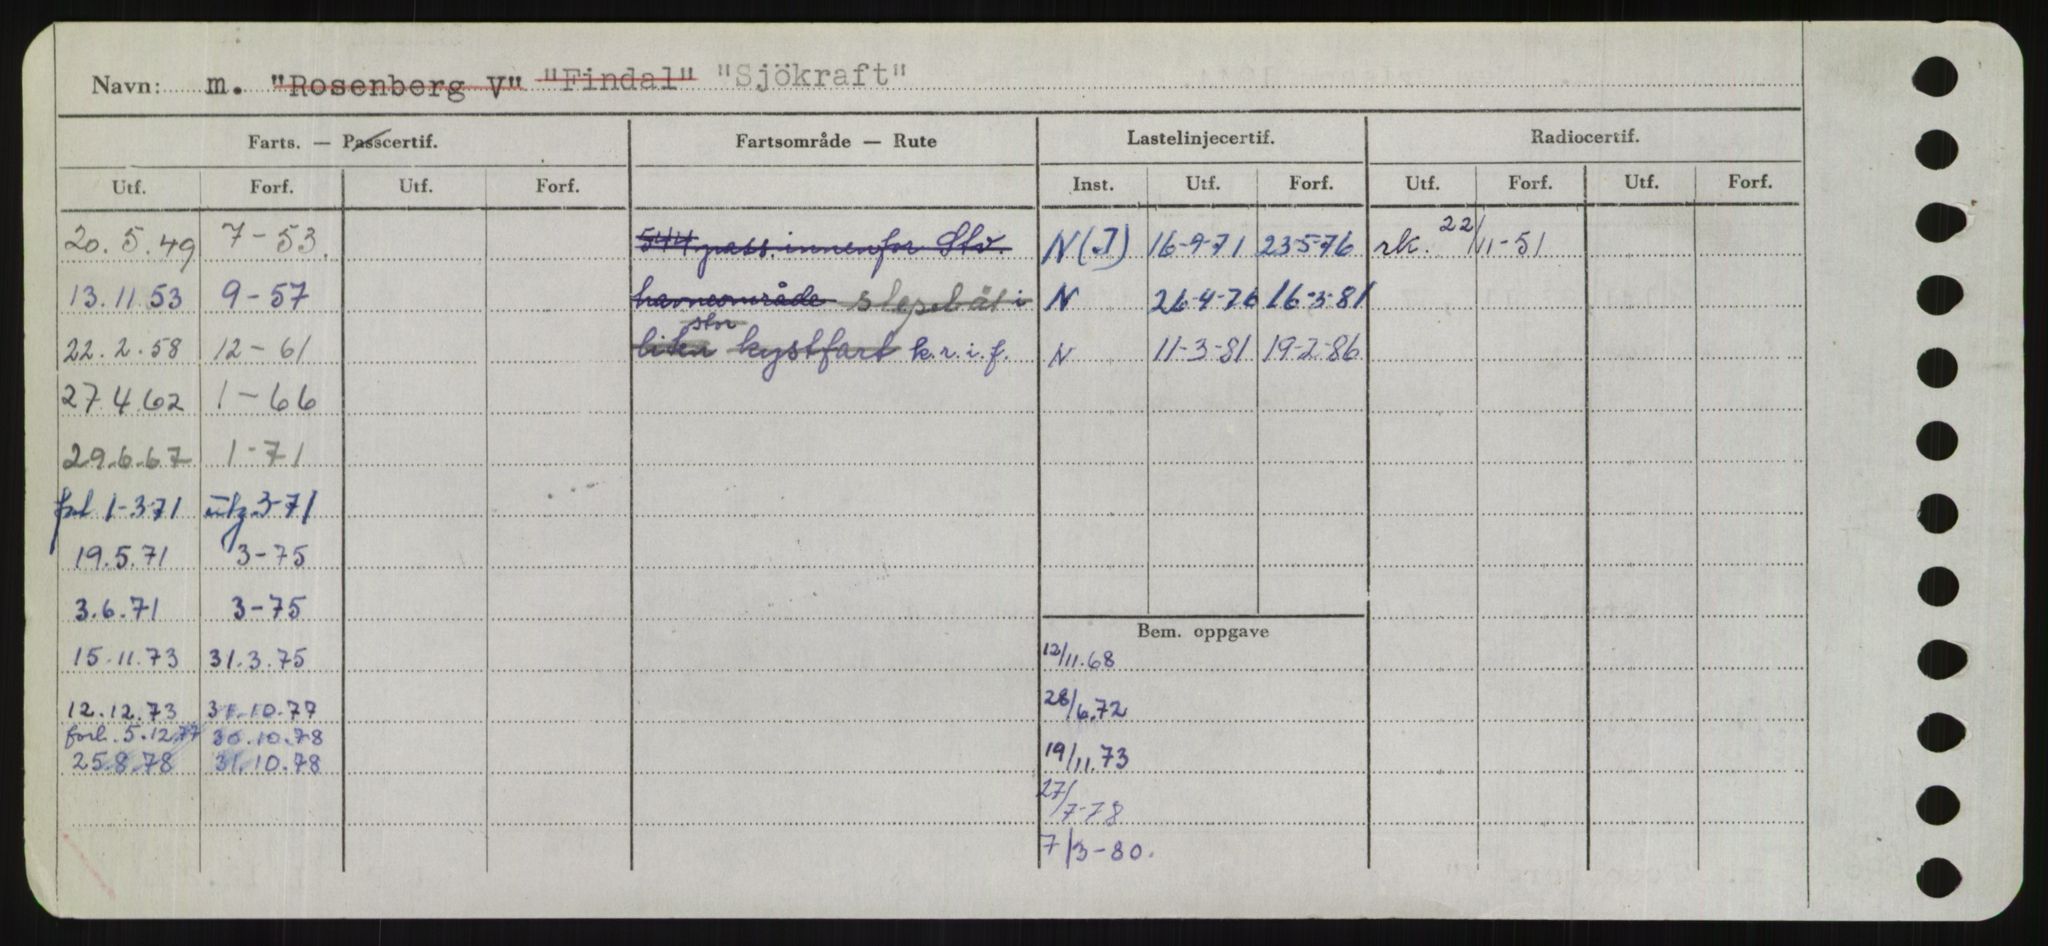 Navn: m. "Rosenberg V" "Findal" "Sjökraft"
Farts. — Passcertif. Fartsområde — Rute Lastelinjecertif. Radiocertif.
Utf. Forf. Utf. Forf. Inst. Utf. Forf. Utf. Forf. Utf. Forf.
20.5.49 7-53. 544 pass. innenfor Stv. N(I) 16-9-71 23-5-76 rk. 22/11-51
13.11.53 9-57 havneområde slepebåt i N 26-4-76 16-3-81
stor
22.2.58 12-61 liten kystfart k.r.i.f. N 11-3-81 19-2-86
27.4.62 1-66
29.6.67 1-71
1-3-71 utg. 3-71
19.5.71 3-75
3.6.71 3-75
Bem. oppgave
15.11.73 31.3.75 12/11.68
12.12.73 31.10.77 28/6.72
forl. 5.12.77 30.10.78
25.8.78 31.10.78 19/11.73
27/7-78
7/3-80.